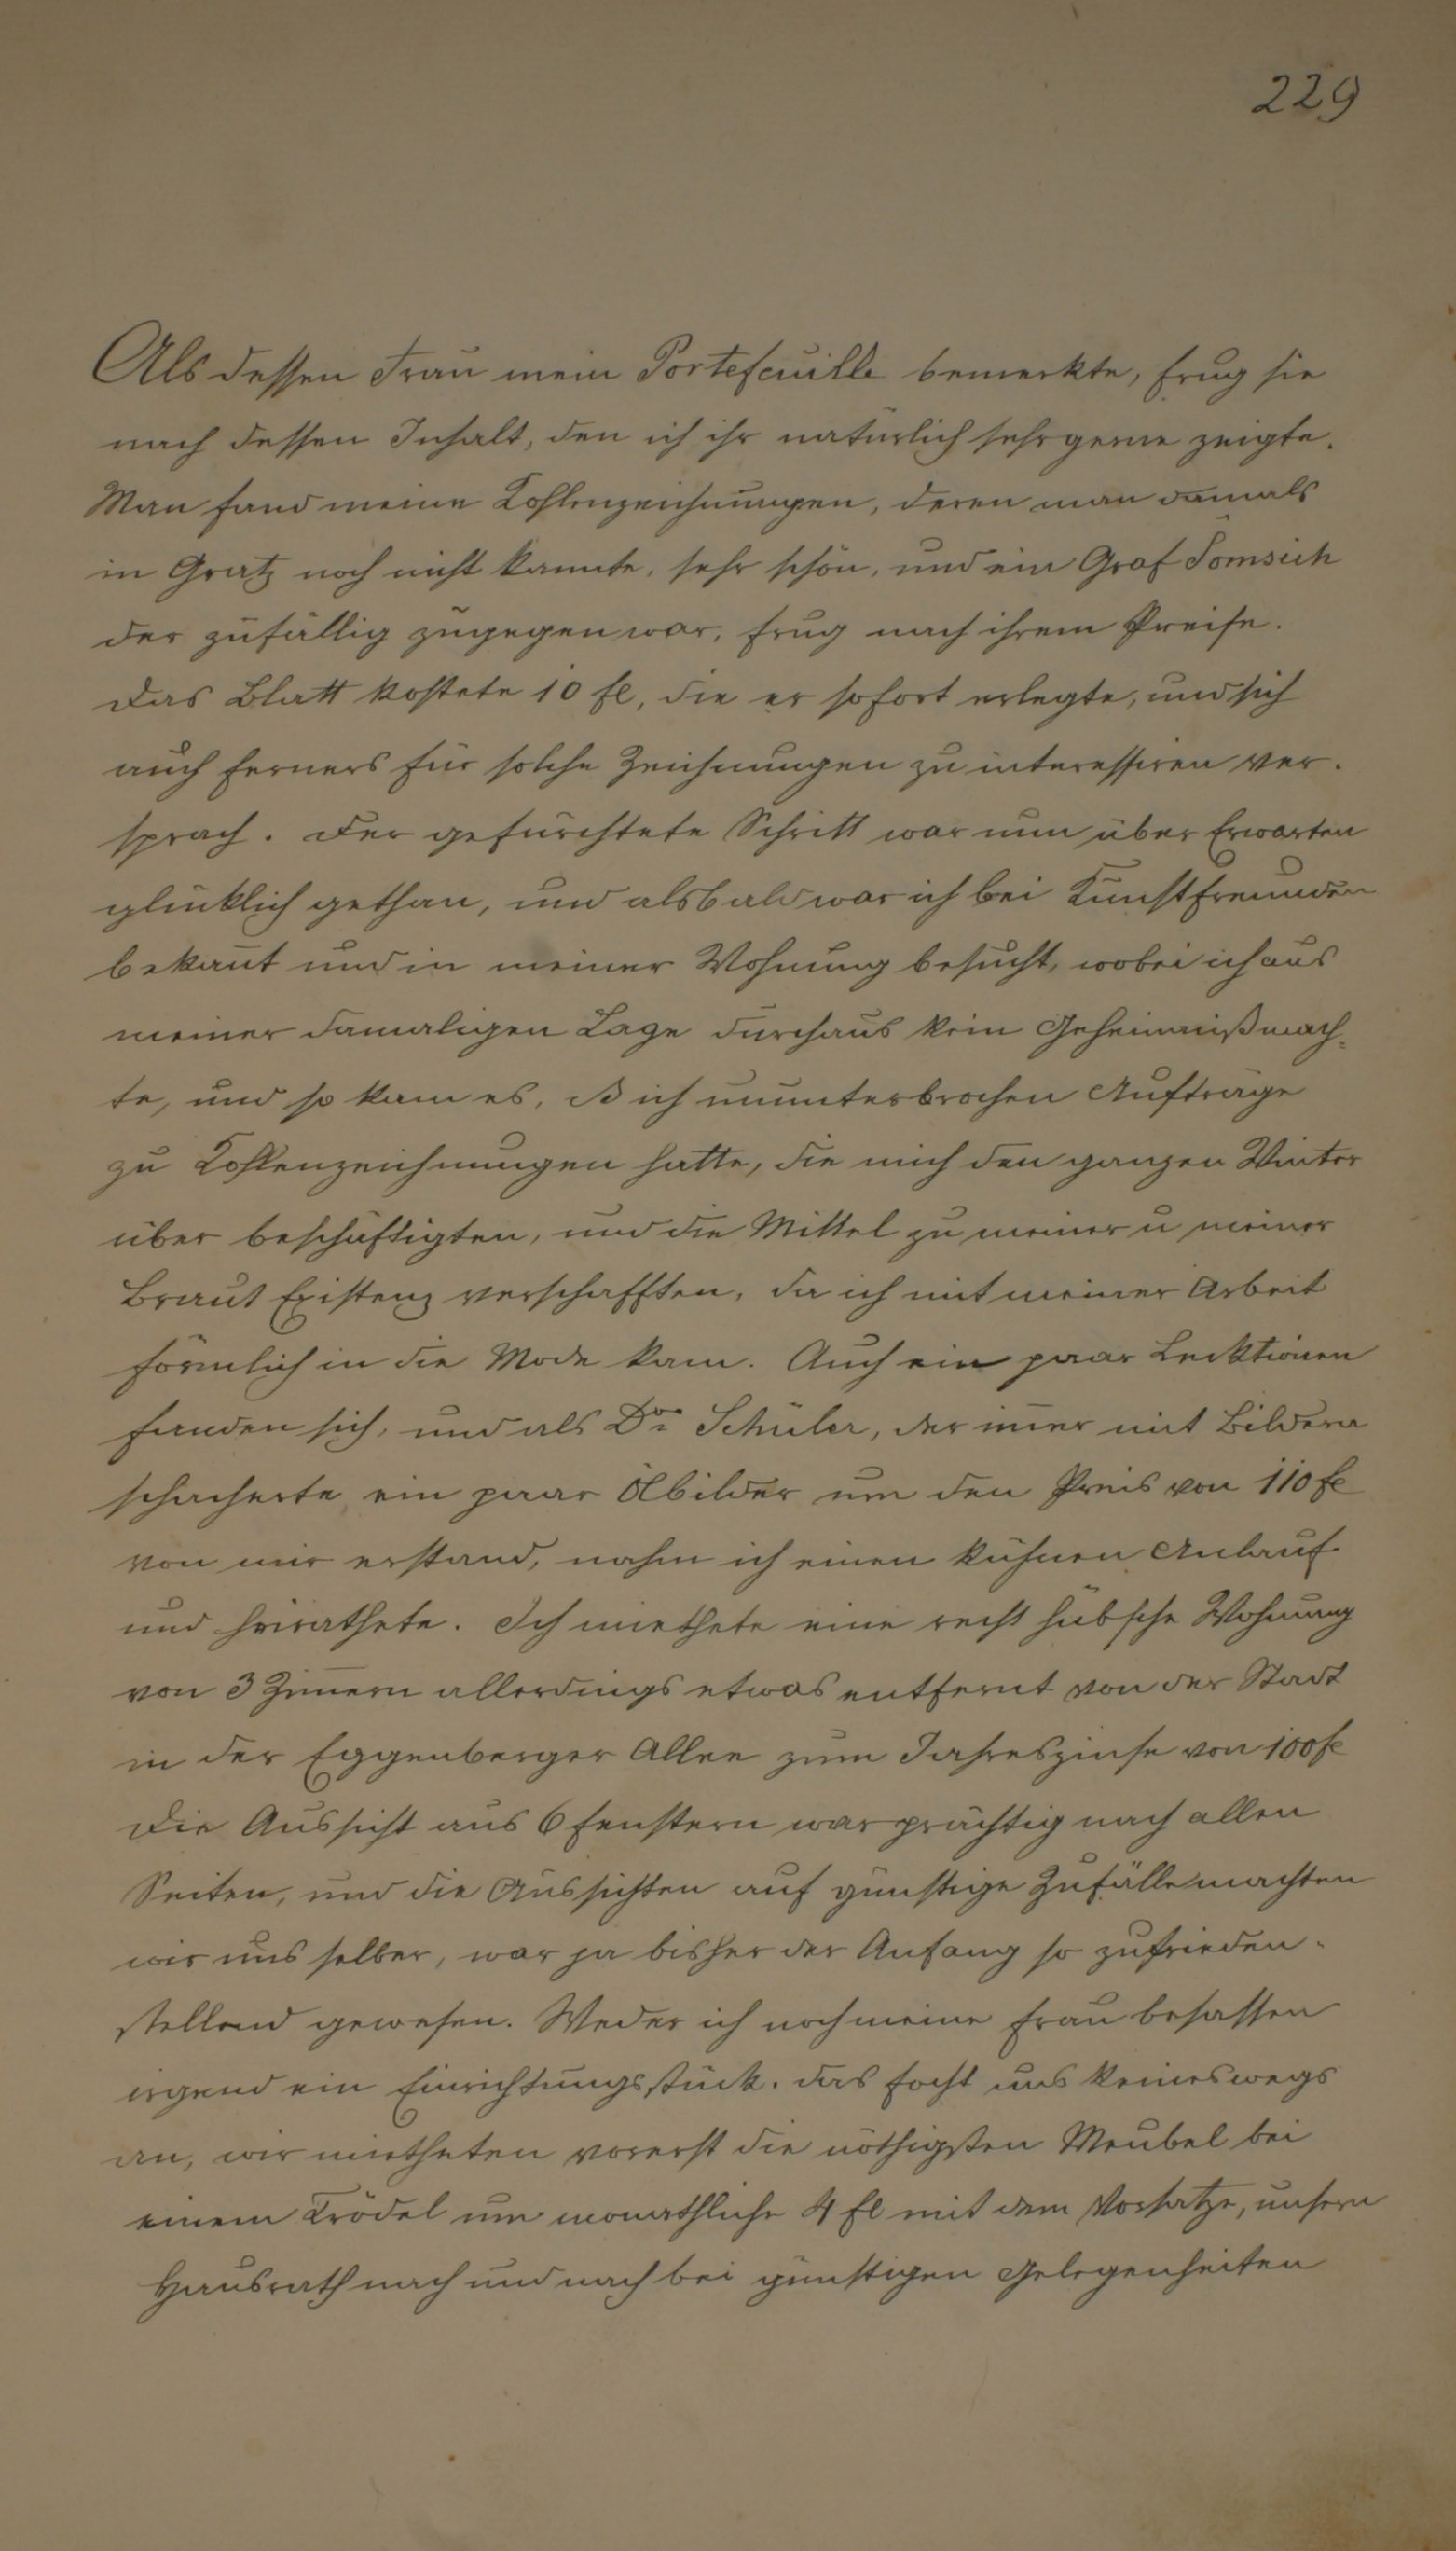 229
Als dessen Frau mein Portefeuille bemerkte, frug sie
nach dessen Inhalt, den ich ihr natürlich sehr gerne zeigte.
Man fand meine Kohlenzeichnungen, deren man damals
in Gratz noch nicht kannte, sehr schön, und ein Graf Somsich
der zufällig zugegen war, frug nach ihrem Preise.
Das Blatt kostete 10 fl, die er sofort erlegte, und sich
auch ferners für solche Zeichnungen zu interessiren ver-
sprach. Der gefürchtete Schritt war nun über Erwarten
glücklich gethan, und alsbald war ich bei Kunstfreunden
bekan̄t und in meiner Wohnung besucht, wobei ich aus
meiner damaligen Lage durchaus kein Geheimniß mach=
te, und so kam es, ß ich ununterbrochen Aufträge
zu Kohlenzeichnungen hatte, die mich den ganzen Winter
über beschäftigten, und die Mittel zu meiner u meiner
Braut Existenz verschafften, da ich mit meiner Arbeit
förmlich in die Mode kam. Auch ein paar Lecktionen
fanden sich, und als Dr Schüler, der im̄er mit Bildern
schacherte ein paar Ölbilder um den Preis von 110 fl
von mir erstand, nahm ich einen kühnen Anlauf
und heirathete. Ich miethete eine recht hübsche Wohnung
von 3 Zim̄ern allerdings etwas entfernt von der Stadt
in der Eggenberger Allee zum Jahreszinse von 100 fl
Die Aussicht aus 6 Fenstern war prächtig nach allen
Seiten, und die Aussichten auf günstige Zufälle machten
wir uns selber, war ja bisher der Anfang so zufrieden-
stellend gewesen. Weder ich noch meine Frau besassen
irgend ein Einrichtungsstück. das focht uns keineswegs
an, wir mietheten vorerst die nöthigsten Meubel bei
einem Trödel um monathliche 4 fl mit dem Vorsatze, unsern
Hausrath nach und nach bei günstigen Gelegenheiten